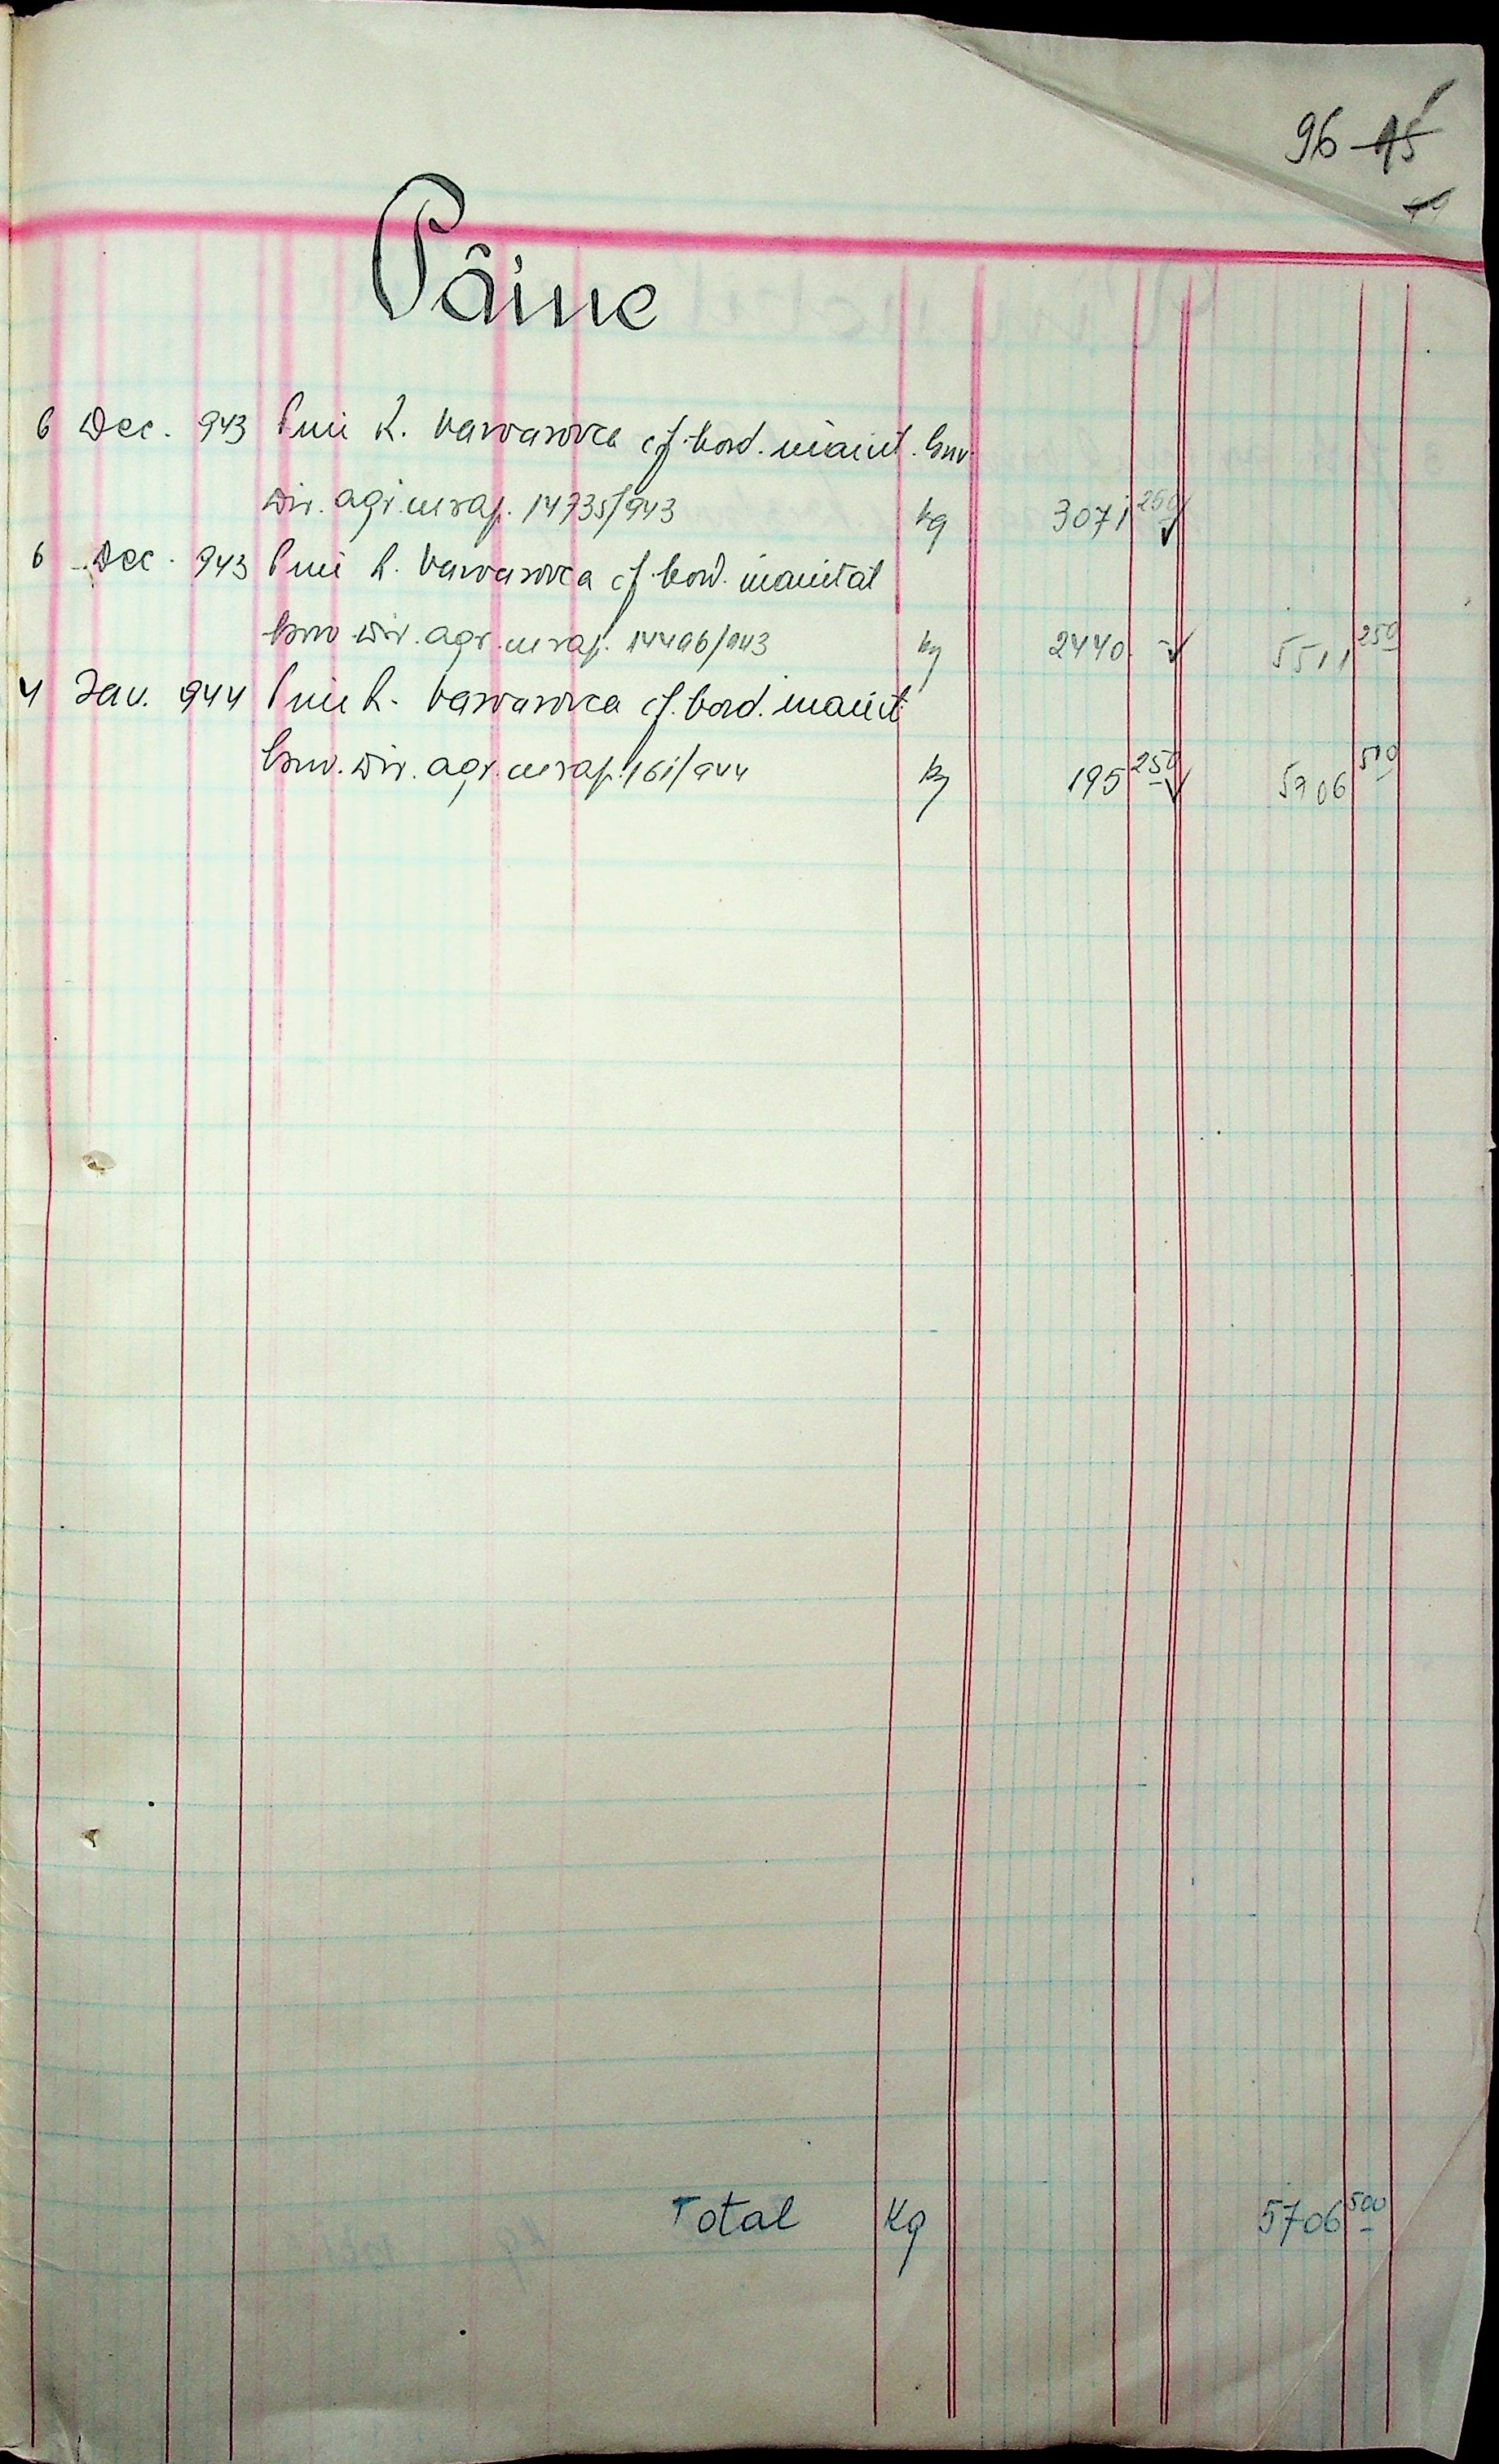 96 15
Pâine
6 Dec. 943 Prim R. Varvarovca cf. bord. inaint. Guv.
Dir. agr. cu rap. 14735/943 kg 3071 250
6 Dec. 943 Prim R. Varvarovca cf. bord. inaintat
Guv. Dir. agr. cu rap. 14496/943 kg 2440 5511 250
4 Ian. 944 Prim R. Varvarovca cf. bord. inaint
Guv. Dir. agr. cu rap. 161/944 kg 195 250 5706 500
Total Kg 5706 500